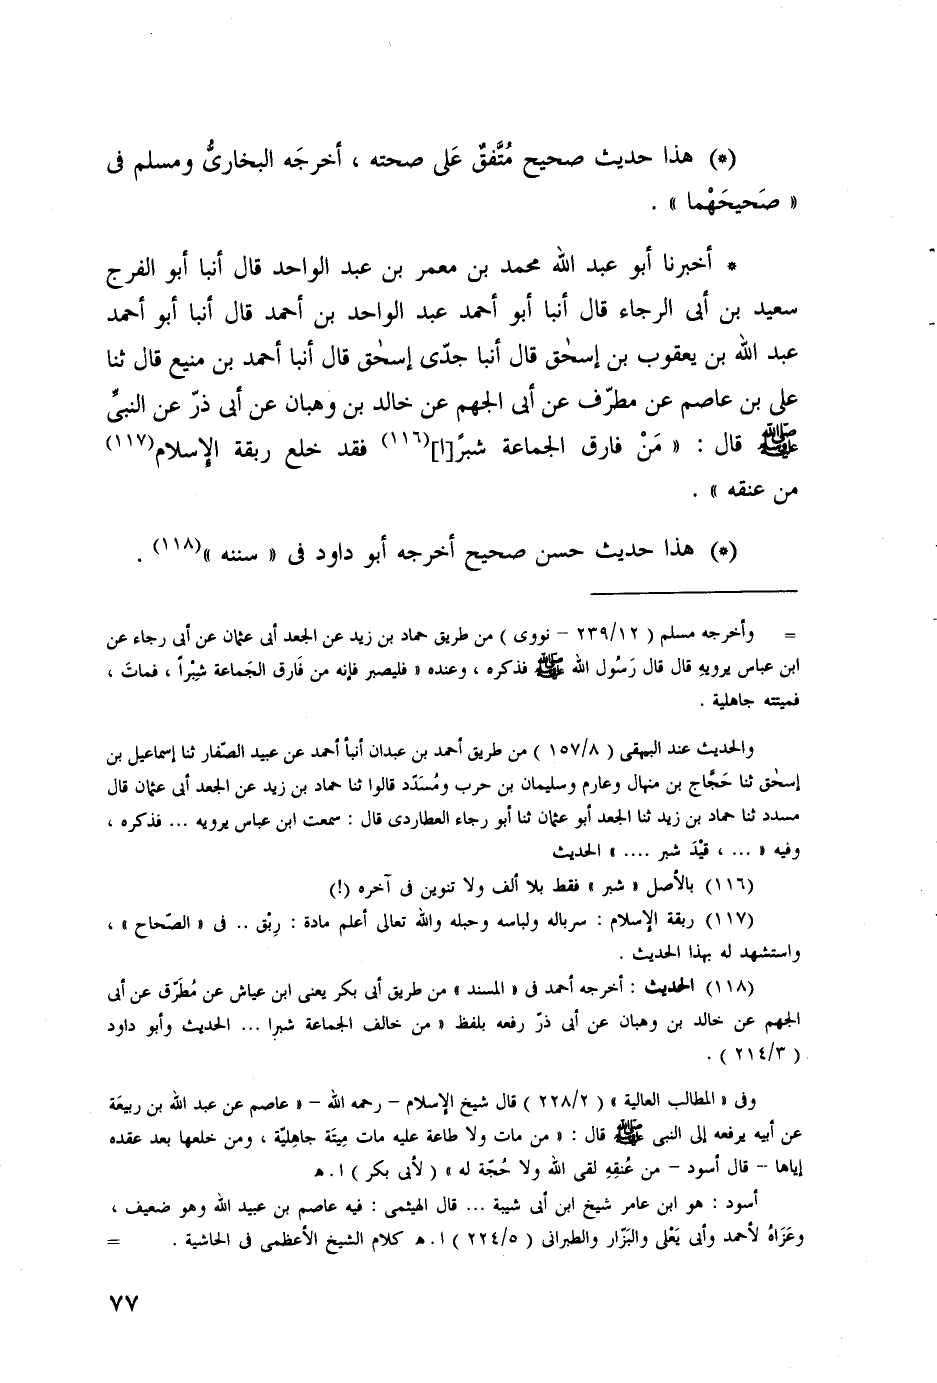 (*) هذا حديث صحيح مُتَّفقٌ عَلى صحته ، أخرجَه البخارىُّ ومسلم فى
« صَحيحَهْما » .
* أخبرنا أبو عبد الله محمد بن معمر بن عبد الواحد قال أنبا أبو الفرج
سعيد بن أبى الرجاء قال أنبا أبو أحمد عبد الواحد بن أحمد قال أنبا أبو أحمد
عبد الله بن يعقوب بن إسحٰق قال أنبا جدّى إسحٰق قال أنبا أحمد بن منيع قال ثنا
على بن عاصم عن مطرّف عن أبى الجهم عن خالد بن وهبان عن أبى ذرّ عن النبىِّ
ﷺ قال : « مَنْ فارق الجماعة شبرً[ا](١١٦) فقد خلع ربقة الإِسلام(١١٧)
من عنقه » .
(*) هذا حديث حسن صحيح أخرجه أبو داود فى « سننه »(١١٨) .
= وأخرجه مسلم ( ٢٣٩/١٢ – نووى ) من طريق حماد بن زيد عن الجعد أبى عثمان عن أبى رجاء عن
ابن عباس يرويهِ قال قال رَسُول الله ﷺ فذكره ، وعنده « فليصبر فإنه من فَارق الجَماعة شِبْراً ، فماتَ ،
فميتته جاهلية .
والحديث عند البيهقى ( ١٥٧/٨ ) من طريق أحمد بن عبدان أنبأ أحمد عن عبيد الصّفار ثنا إسماعيل بن
إسحٰق ثنا حَجَّاج بن منهال وعارم وسليمان بن حرب ومُسَدّد قالوا ثنا حماد بن زيد عن الجعد أبى عثمان قال
مسدد ثنا حماد بن زيد ثنا الجعد أبو عثمان ثنا أبو رجاء العطاردى قال : سمعت ابن عباس يرويه ... فذكره ،
وفيه « ... ، قيْدَ شبر .... » الحديث
(١١٦) بالأصل « شبر » فقط بلا ألف ولا تنوين فى آخره (!)
(١١٧) ربقة الإسلام : سرباله ولباسه وحبله والله تعالى أعلم مادة : رِبْق .. فى « الصّحاح » ،
واستشهد له بهذا الحديث .
(١١٨) الحديث : أخرجه أحمد فى « المسند » من طريق أبى بكر يعنى ابن عياش عن مُطَرّق عن أبى
الجهم عن خالد بن وهبان عن أبى ذرّ رفعه بلفظ « من خالف الجماعة شبرا ... الحديث وأبو داود
( ٢١٤/٣ ) .
وفى « المطالب العالية » ( ٢٢٨/٢ ) قال شيخ الإسلام – رحمه الله – « عاصم عن عبد الله بن ربيعَة
عن أبيه يرفعه إلى النبى ﷺ قال : « من مات ولا طاعة عليه مات مِيتَة جاهِليّة ، ومن خلعها بعد عقده
إياها – قال أسود – من عُنقِهِ لقى الله ولا حُجّة له » ( لأبى بكر ) ا . هـ
أسود : هو ابن عامر شيخ ابن أبى شيبة ... قال الهيثمى : فيه عاصم بن عبيد الله وهو ضعيف ،
وعَزَاهُ لأحمد وأبى يَعْلى والبَزّار والطبرانى ( ٢٢٤/٥ ) ا . هـ كلام الشيخ الأعظمى فى الحاشية . =
٧٧